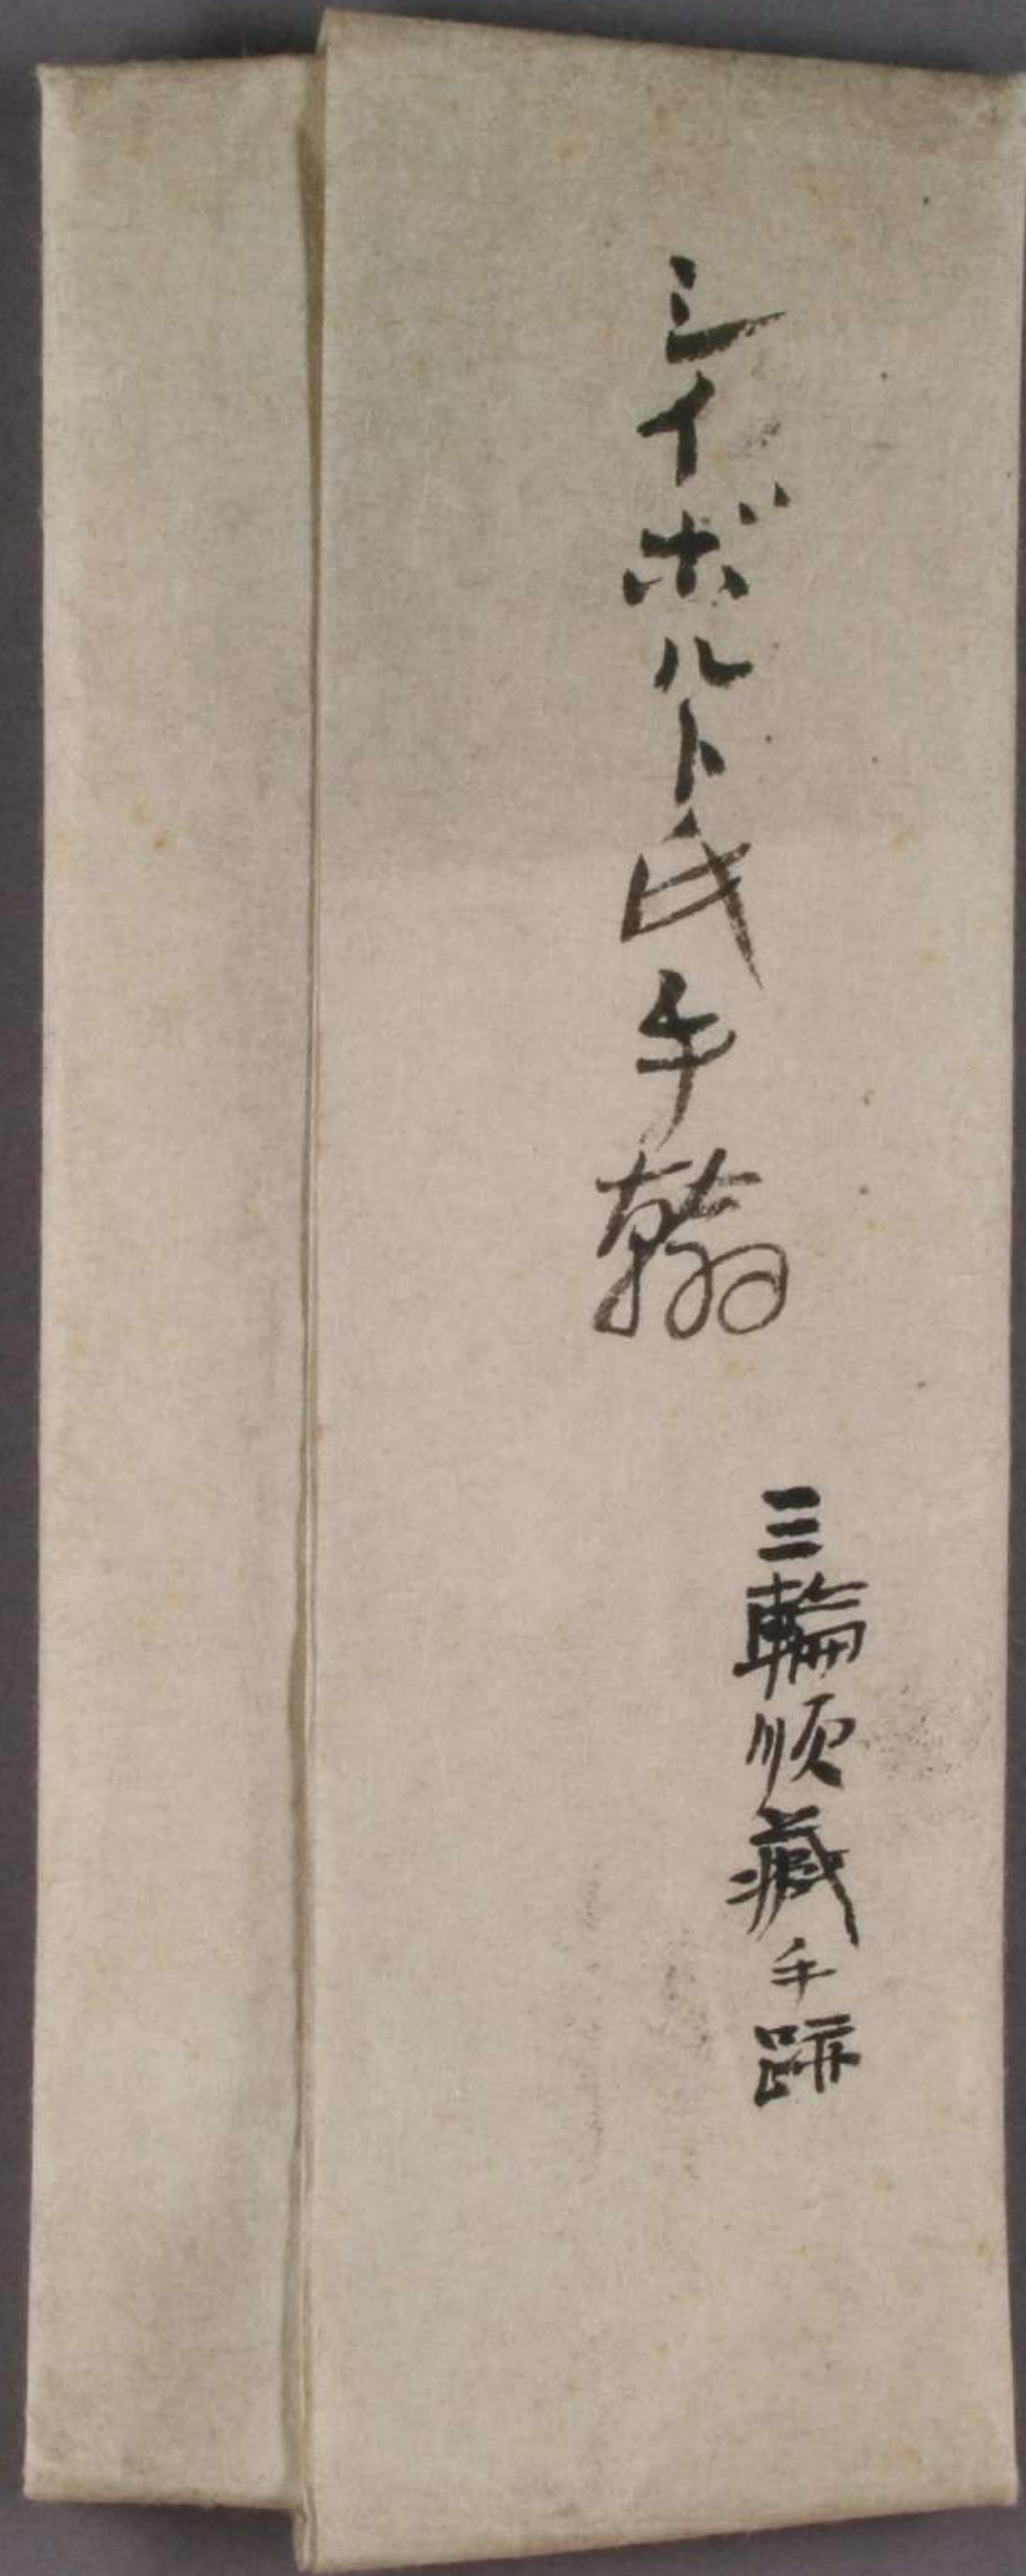 シイボルト氏手翰
三輪順藏手跡